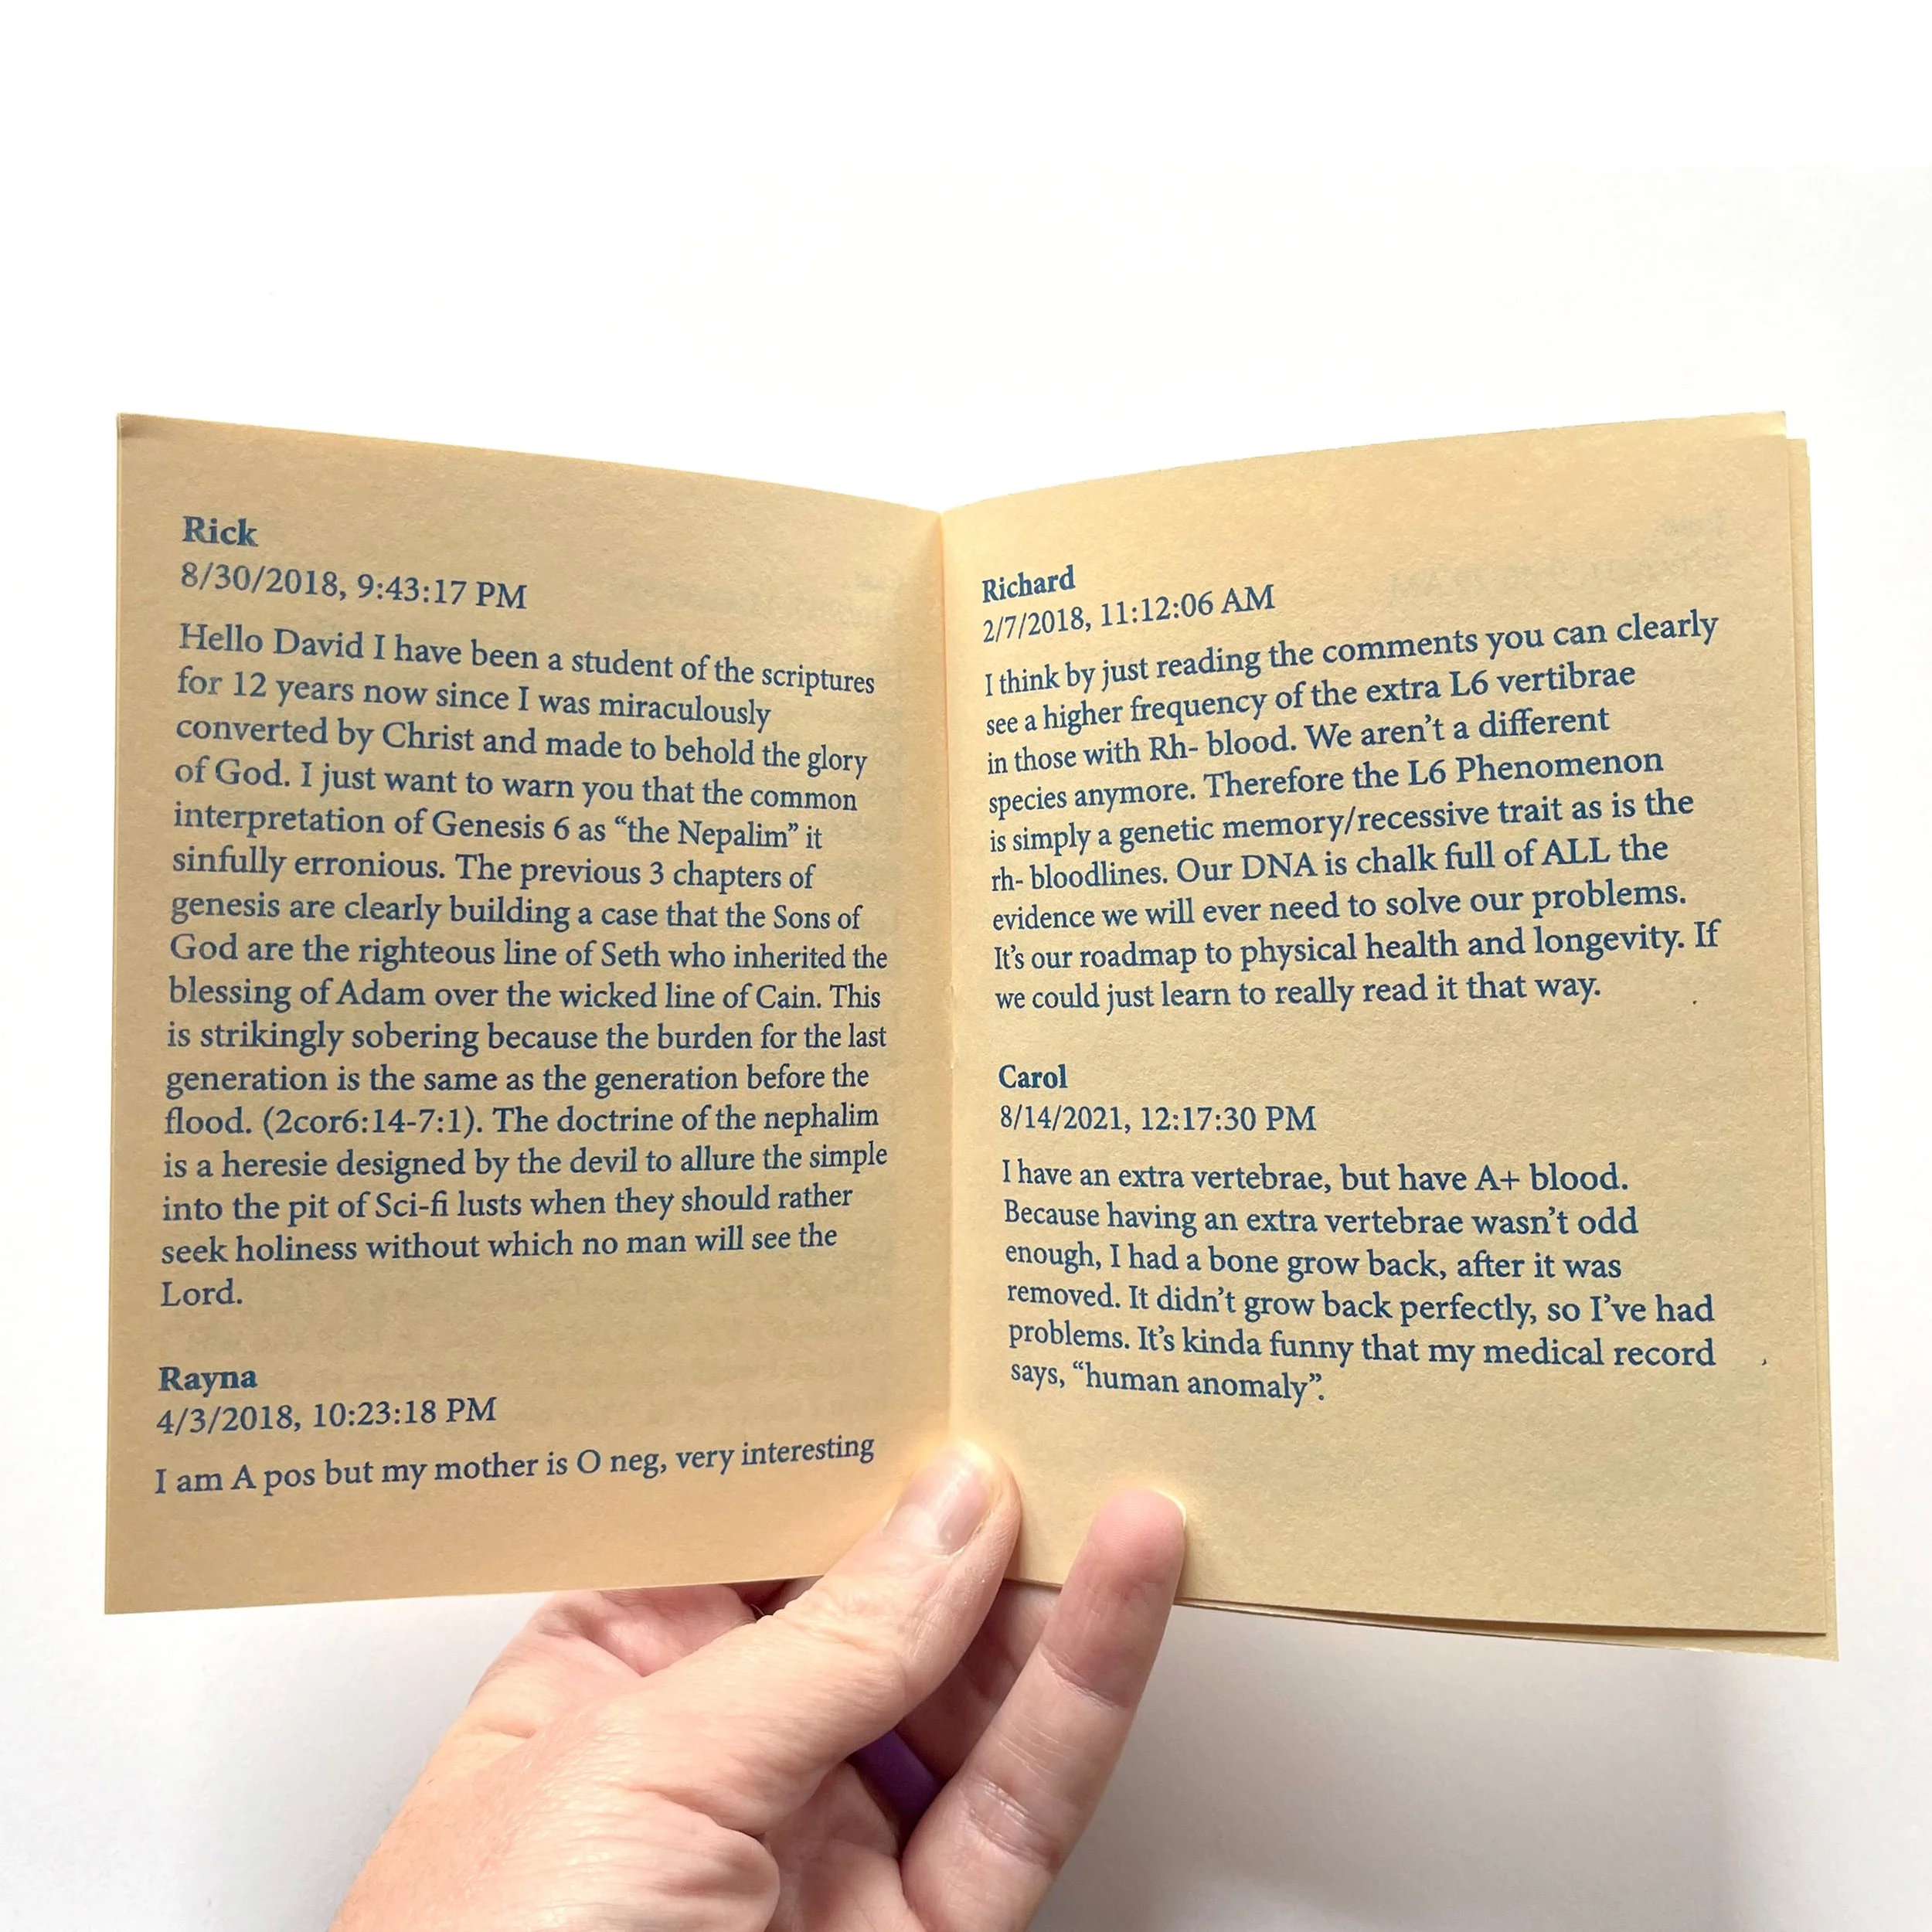 Rick
8/30/2018, 9:43:17 PM
Hello David I have been a student of the scriptures
for 12 years now since I was miraculously
converted by Christ and made to behold the glory
of God. I just want to warn you that the common
interpretation of Genesis 6 as “the Nepalim” it
sinfully erronious. The previous 3 chapters of
genesis are clearly building a case that the Sons of
God are the righteous line of Seth who inherited the
blessing of Adam over the wicked line of Cain. This
is strikingly sobering because the burden for the last
generation is the same as the generation before the
flood. (2cor6:14-7:1). The doctrine of the nephalim
is a heresie designed by the devil to allure the simple
into the pit of Sci-fi lusts when they should rather
seek holiness without which no man will see the
Lord.
Rayna
4/3/2018, 10:23:18 PM
I am A pos but my mother is O neg, very interesting
Richard
2/7/2018, 11:12:06 AM
I think by just reading the comments you can clearly
see a higher frequency of the extra L6 vertibrae
in those with Rh- blood. We aren’t a different
species anymore. Therefore the L6 Phenomenon
is simply a genetic memory/recessive trait as is the
rh- bloodlines. Our DNA is chalk full of ALL the
evidence we will ever need to solve our problems.
It’s our roadmap to physical health and longevity. If
we could just learn to really read it that way.
Carol
8/14/2021, 12:17:30 PM
I have an extra vertebrae, but have A+ blood.
Because having an extra vertebrae wasn’t odd
enough, I had a bone grow back, after it was
removed. It didn’t grow back perfectly, so I’ve had
problems. It’s kinda funny that my medical record
says, “human anomaly”.